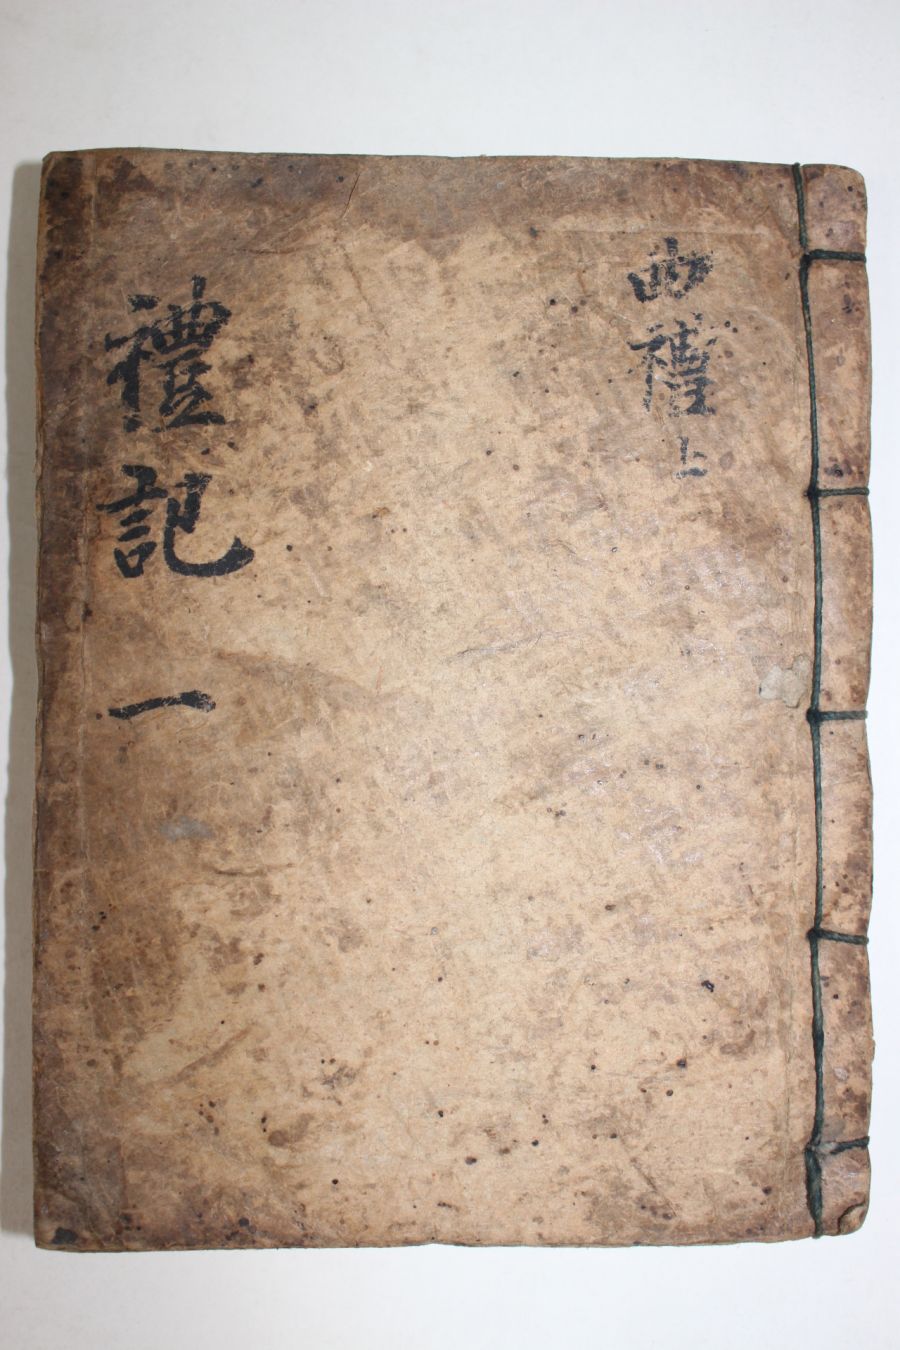 曲禮上
禮記 一